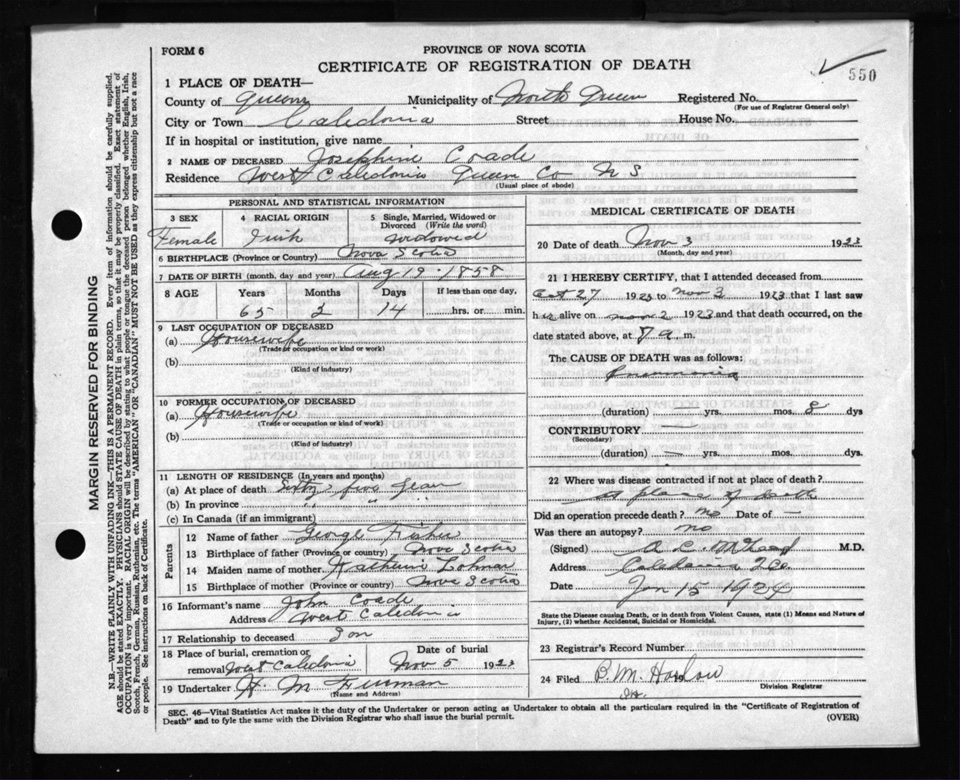 FORM 6
PROVINCE OF NOVA SCOTIA
CERTIFICATE OF REGISTRATION OF DEATH
550
1 PLACE OF DEATH—
County of Queens Municipality of North Queen Registered No.
(For use of Registrar General only)
City or Town Caledonia Street House No.
If in hospital or institution, give name
2 NAME OF DECEASED Josephine Coade
Residence West Caledonia Queen Co N S
(Usual place of abode)
PERSONAL AND STATISTICAL INFORMATION
3 SEX 4 RACIAL ORIGIN 5 Single, Married, Widowed or Divorced (Write the word)
Female Irish widowed
6 BIRTHPLACE (Province or Country) Nova Scotia
7 DATE OF BIRTH (month, day and year) Aug 19 . 1858
8 AGE Years Months Days If less than one day,
65 2 14 hrs. or min.
9 LAST OCCUPATION OF DECEASED
(a) Housewife
(Trade or occupation or kind or work)
(b)
(Kind of industry)
10 FORMER OCCUPATION OF DECEASED
(a) Housewife
(Trade or occupation or kind of work)
(b)
(Kind of industry)
11 LENGTH OF RESIDENCE (In years and months)
(a) At place of death Sixty five years
(b) In province " "
(c) In Canada (if an immigrant)
Parents
12 Name of father George Fisher
13 Birthplace of father (Province or country) Nova Scotia
14 Maiden name of mother Katherine Lohnar
15 Birthplace of mother (Province or country) Nova Scotia
16 Informant's name John Coade
Address West Caledonia
17 Relationship to deceased Son
18 Place of burial, cremation or removal West Caledonia Date of burial Nov 5 1923
19 Undertaker H M Freeman
(Name and Address)
MEDICAL CERTIFICATE OF DEATH
20 Date of death Nov 3 1923
(Month, day and year)
21 I HEREBY CERTIFY, that I attended deceased from
Oct 27 1923 to Nov 3 1923 that I last saw
h er alive on Nov 2 1923 and that death occurred, on the
date stated above, at 7 a. m.
The CAUSE OF DEATH was as follows:
Pneumonia
(duration) — yrs. mos. 8 dys
CONTRIBUTORY —
(Secondary)
(duration) — yrs. mos. dys
22 Where was disease contracted if not at place of death?
at place of death
Did an operation precede death? no Date of —
Was there an autopsy? no
(Signed) M.D.
Address Caledonia
Date Jan 15 1924
State the Disease causing Death, or in death from Violent Causes, state (1) Means and Nature of
Injury, (2) whether Accidental, Suicidal or Homicidal.
23 Registrar's Record Number
24 Filed B. M. Harlow
Division Registrar
SEC. 46—Vital Statistics Act makes it the duty of the Undertaker or person acting as Undertaker to obtain all the particulars required in the "Certificate of Registration of
Death" and to fyle the same with the Division Registrar who shall issue the burial permit. (OVER)
MARGIN RESERVED FOR BINDING
N.B.—WRITE PLAINLY WITH UNFADING INK—THIS IS A PERMANENT RECORD. Every item of information should be carefully supplied.
AGE should be stated EXACTLY. PHYSICIANS should STATE CAUSE OF DEATH in plain terms, so that it may be properly classified. Exact statement of
OCCUPATION is very important. RACIAL ORIGIN will be described by stating to what people or tongue the deceased person belonged whether English, Irish,
Scotch, French, German, Russian, Ruthenian, etc. The terms "AMERICAN" OR "CANADIAN" MUST NOT BE USED as they express citizenship but not a race
or people. See instructions on back of Certificate.